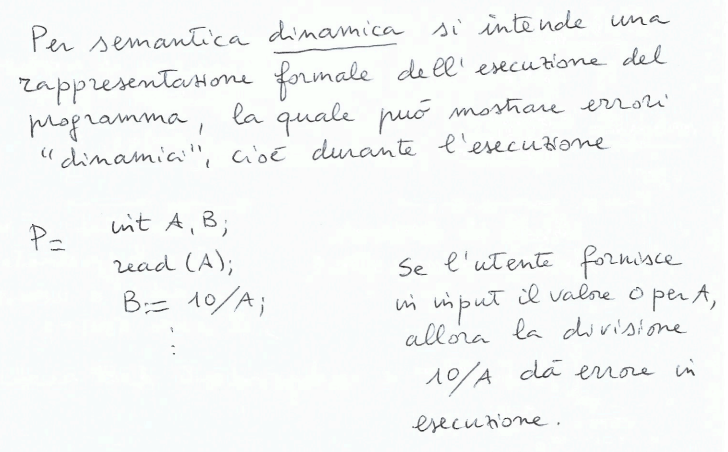 Per semantica dinamica si intende una
rappresentazione formale dell'esecuzione del
programma, la quale può mostrare errori
"dinamici", cioè durante l'esecuzione
P= int A, B;
read (A);
B:= 10/A;
⋮
Se l'utente fornisce
in input il valore 0 per A,
allora la divisione
10/A dà errore in
esecuzione.